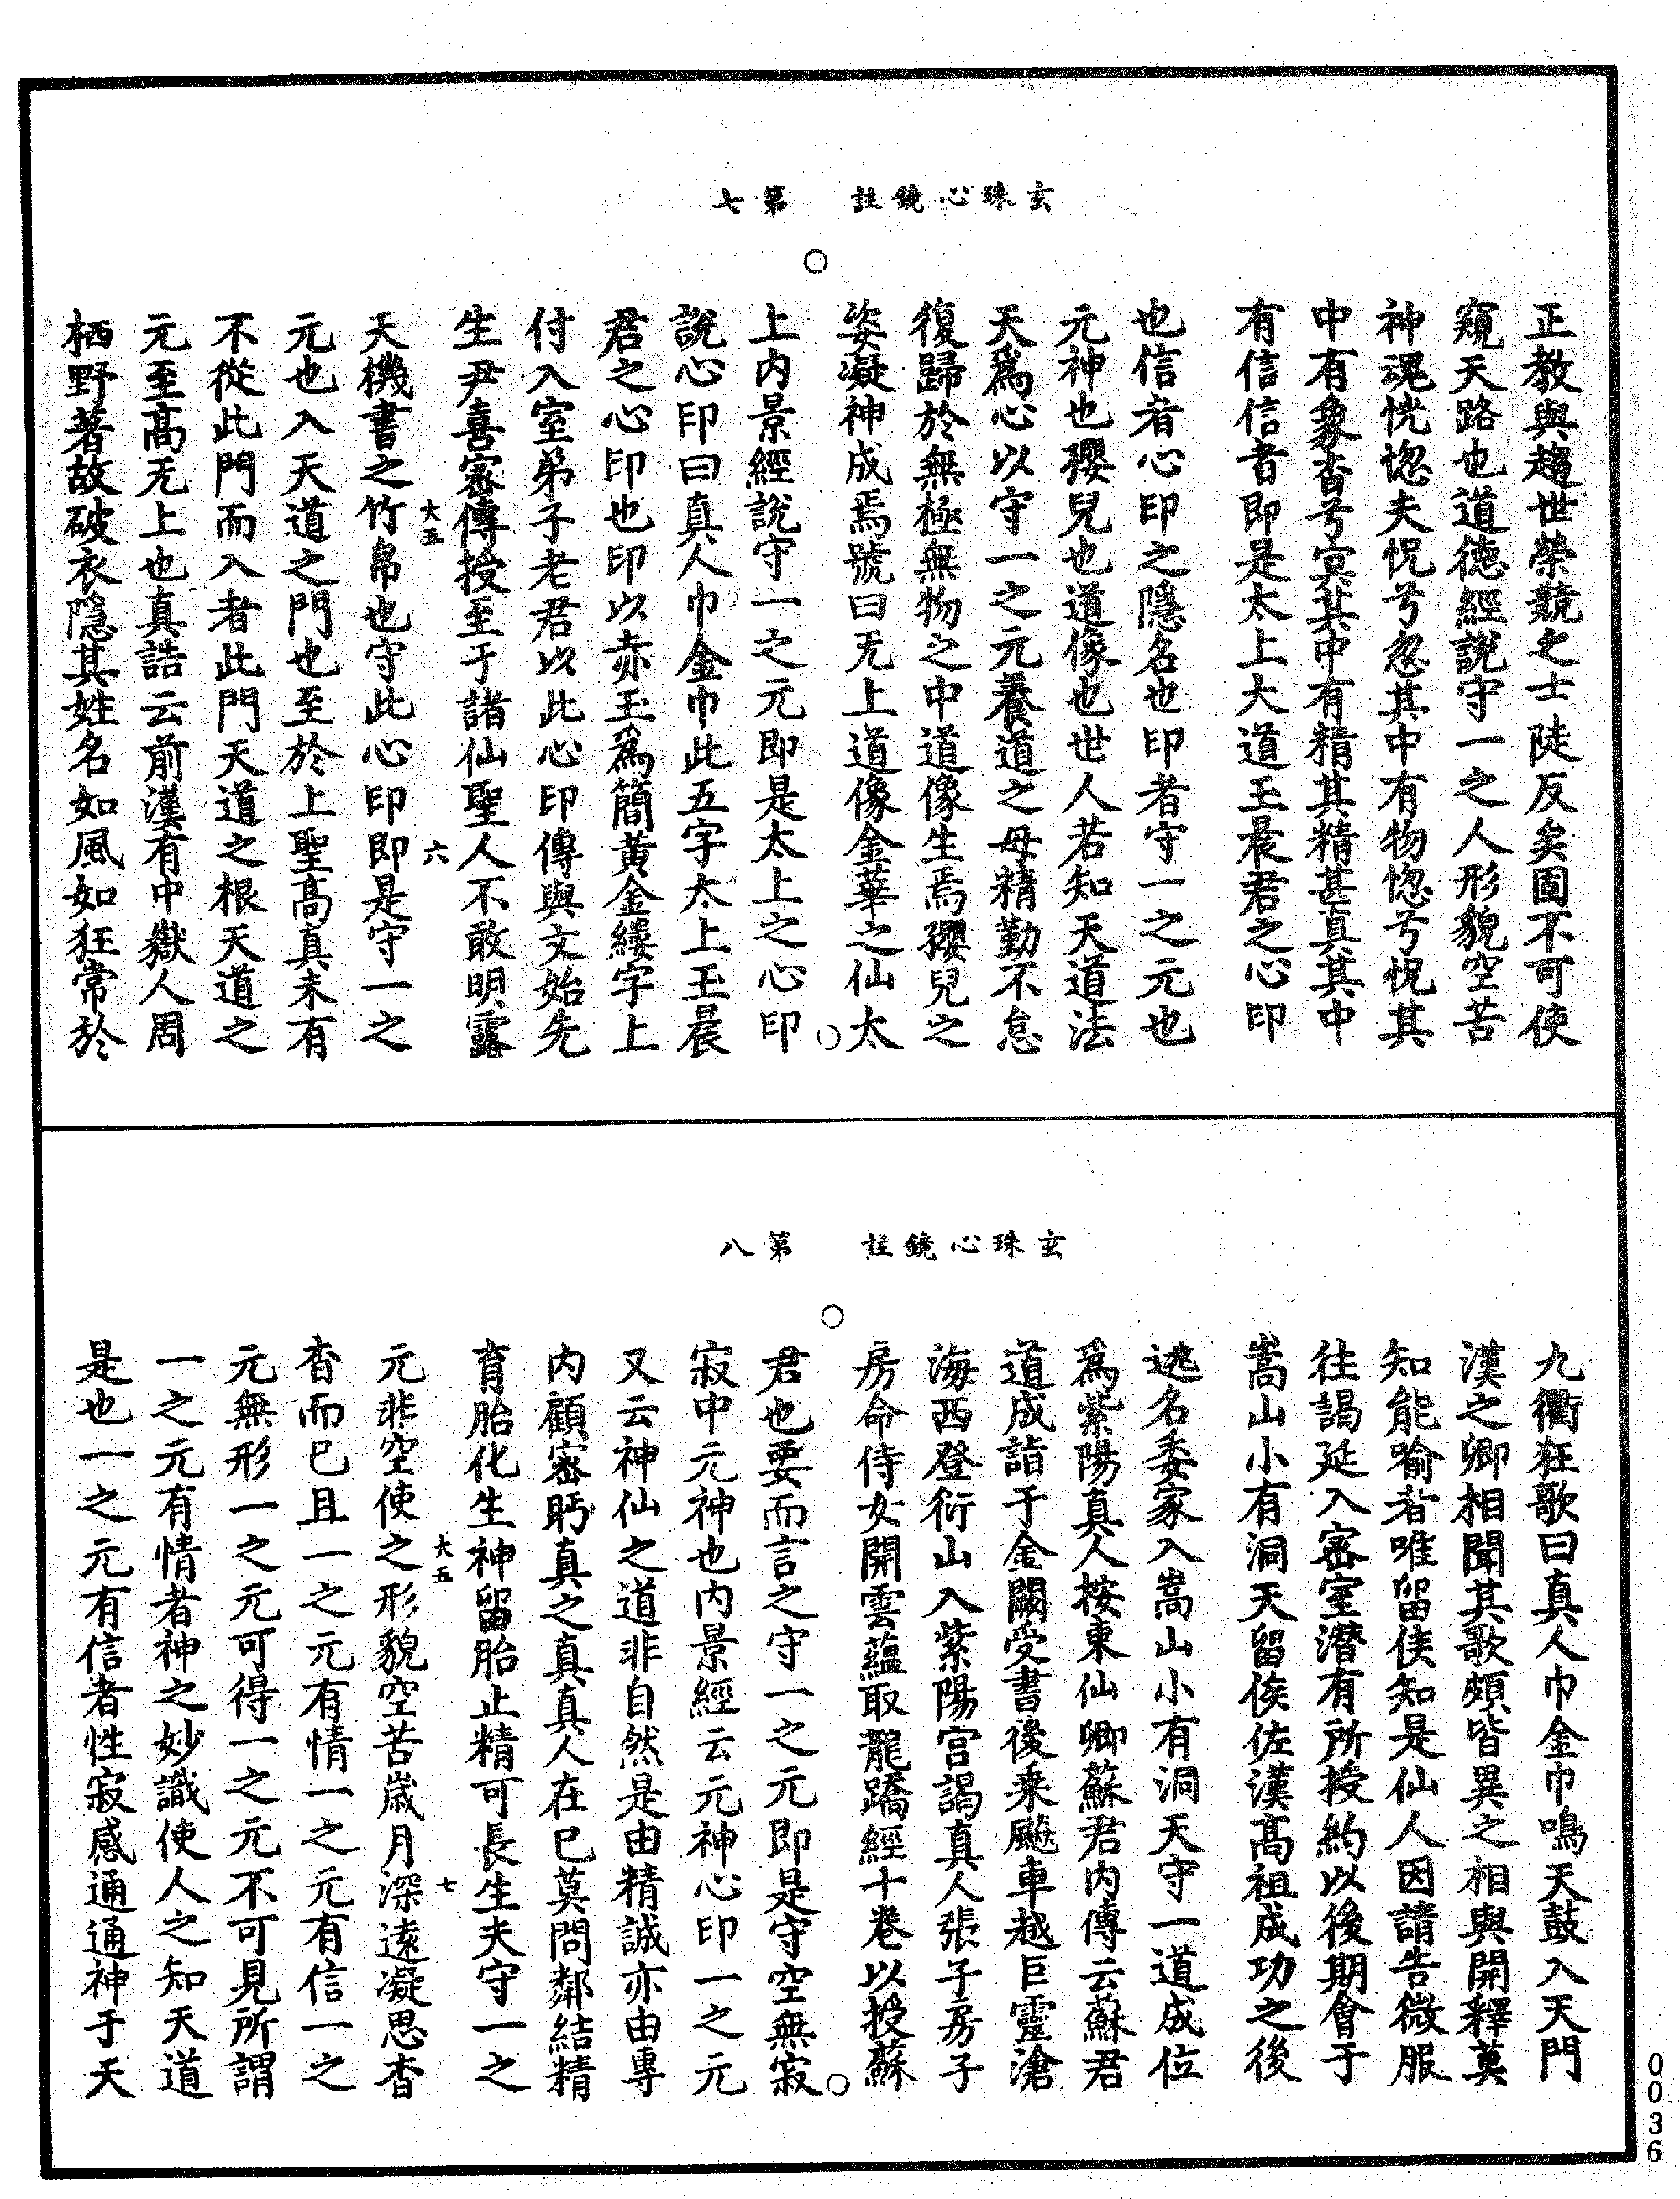 玄珠心鏡註　第七
正教與趨世榮競之士陡反矣固不可使
窺天路也道德經說守一之人形貌空苦
神魂恍惚夫怳兮忽其中有物惚兮怳其
中有象杳兮冥其中有精其精甚真其中
有信信者即是太上大道玉晨君之心印
也信者心印之隱名也印者守一之元也
元神也孾兒也道像也世人若知天道法
天為心以守一之元養道之母精勤不怠
復歸於無極無物之中道像生焉孾兒之
姿凝神成焉號曰无上道像金華之仙太
上内景經說守一之元即是太上之心印
說心印曰真人巾金巾此五字太上玉晨
君之心印也印以赤玉為簡黃金縷字上
付入室弟子老君以此心印傳與文始先
生尹喜密傳授至于諸仙聖人不敢明露
大五　六
天機書之竹帛也守此心印即是守一之
元也入天道之門也至於上聖高真未有
不從此門而入者此門天道之根天道之
元至高无上也真誥云前漢有中嶽人周
栖野著故破衣隱其姓名如風如狂常於
玄珠心鏡註　第八
九衢狂歌曰真人巾金巾鳴天鼓入天門
漢之卿相聞其歌頗皆異之相與開釋莫
知能喻者唯留侯知是仙人因請告微服
往謁延入密室潛有所授約以後期會于
嵩山小有洞天留侯佐漢高祖成功之後
逃名委家入嵩山小有洞天守一道成位
為紫陽真人按東仙卿蘇君内傳云蘇君
道成詣于金闕受書後乘飈車越巨靈滄
海西登衍山入紫陽宮謁真人張子房子
房命侍女開雲蘊取龍蹻經十卷以授蘇
君也要而言之守一之元即是守空無寂
寂中元神也内景經云元神心印一之元
又云神仙之道非自然是由精誠亦由專
内顧密眄真之真真人在已莫問鄰結精
育胎化生神留胎止精可長生夫守一之
大五　七
元非空使之形貌空苦歲月深遠凝思杳
杳而已且一之元有情一之元有信一之
元無形一之元可得一之元不可見所謂
一之元有情者神之妙識使人之知天道
是也一之元有信者性寂感通通神于天
0036